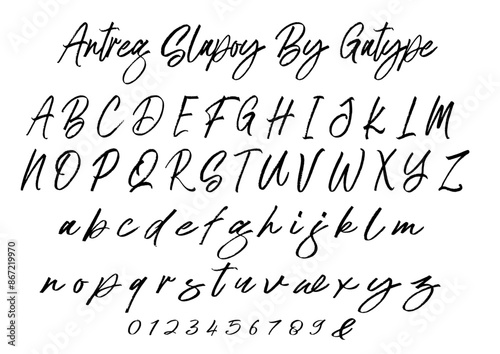 Antreg Slapoy By Gatype
A B C D E F G H I J K L M
N O P Q R S T U V W X Y Z
a b c d e f g h i j k l m
n o p q r s t u v w x y z
0 1 2 3 4 5 6 7 8 9 &
Adobe Stock | #867219970